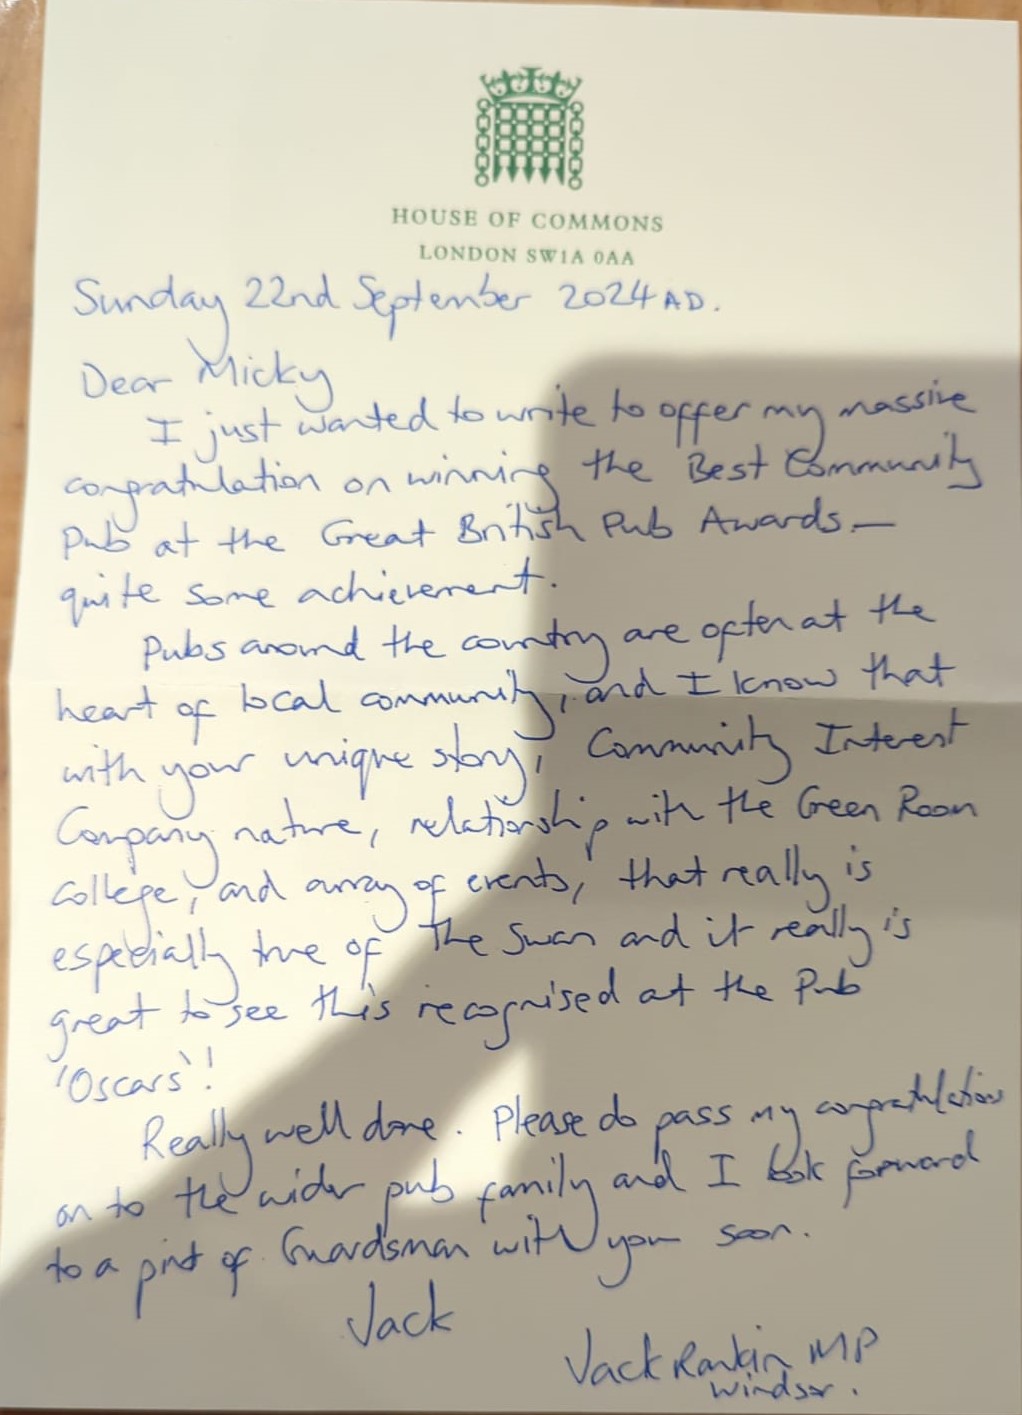 HOUSE OF COMMONS
LONDON SW1A 0AA
Sunday 22nd September 2024 AD.
Dear Micky
I just wanted to write to offer my massive
congratulation on winning the Best Community
Pub at the Great British Pub Awards —
quite some achievement.
Pubs around the country are often at the
heart of local community, and I know that
with your unique story, Community Interest
Company nature, relationship with the Green Room
College, and array of events, that really is
especially true of The Swan and it really is
great to see this recognised at the Pub
'Oscars'!
Really well done. Please do pass my congratulations
on to the wider pub family and I look forward
to a pint of Guardsman with you soon.
Jack
Jack Rankin MP
Windsor.